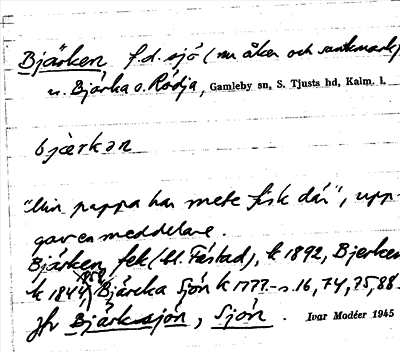 Bjärken f.d. sjö (nu åker och sankmark)
u. Bjärka o. Rödja, Gamleby sn, S. Tjusts hd, Kalm. l.
bjærkən
"Min pappa har mete fisk där", upp-
gav en meddelare.
Bjärken, fek (bl. Fästad), k 1892, Bjerken
k 1844, 1858, Bjärcka Sjön k 1777-s. 16, 74, 75, 88.
Jfr Bjärksjön, Sjön. Ivar Modéer 1945